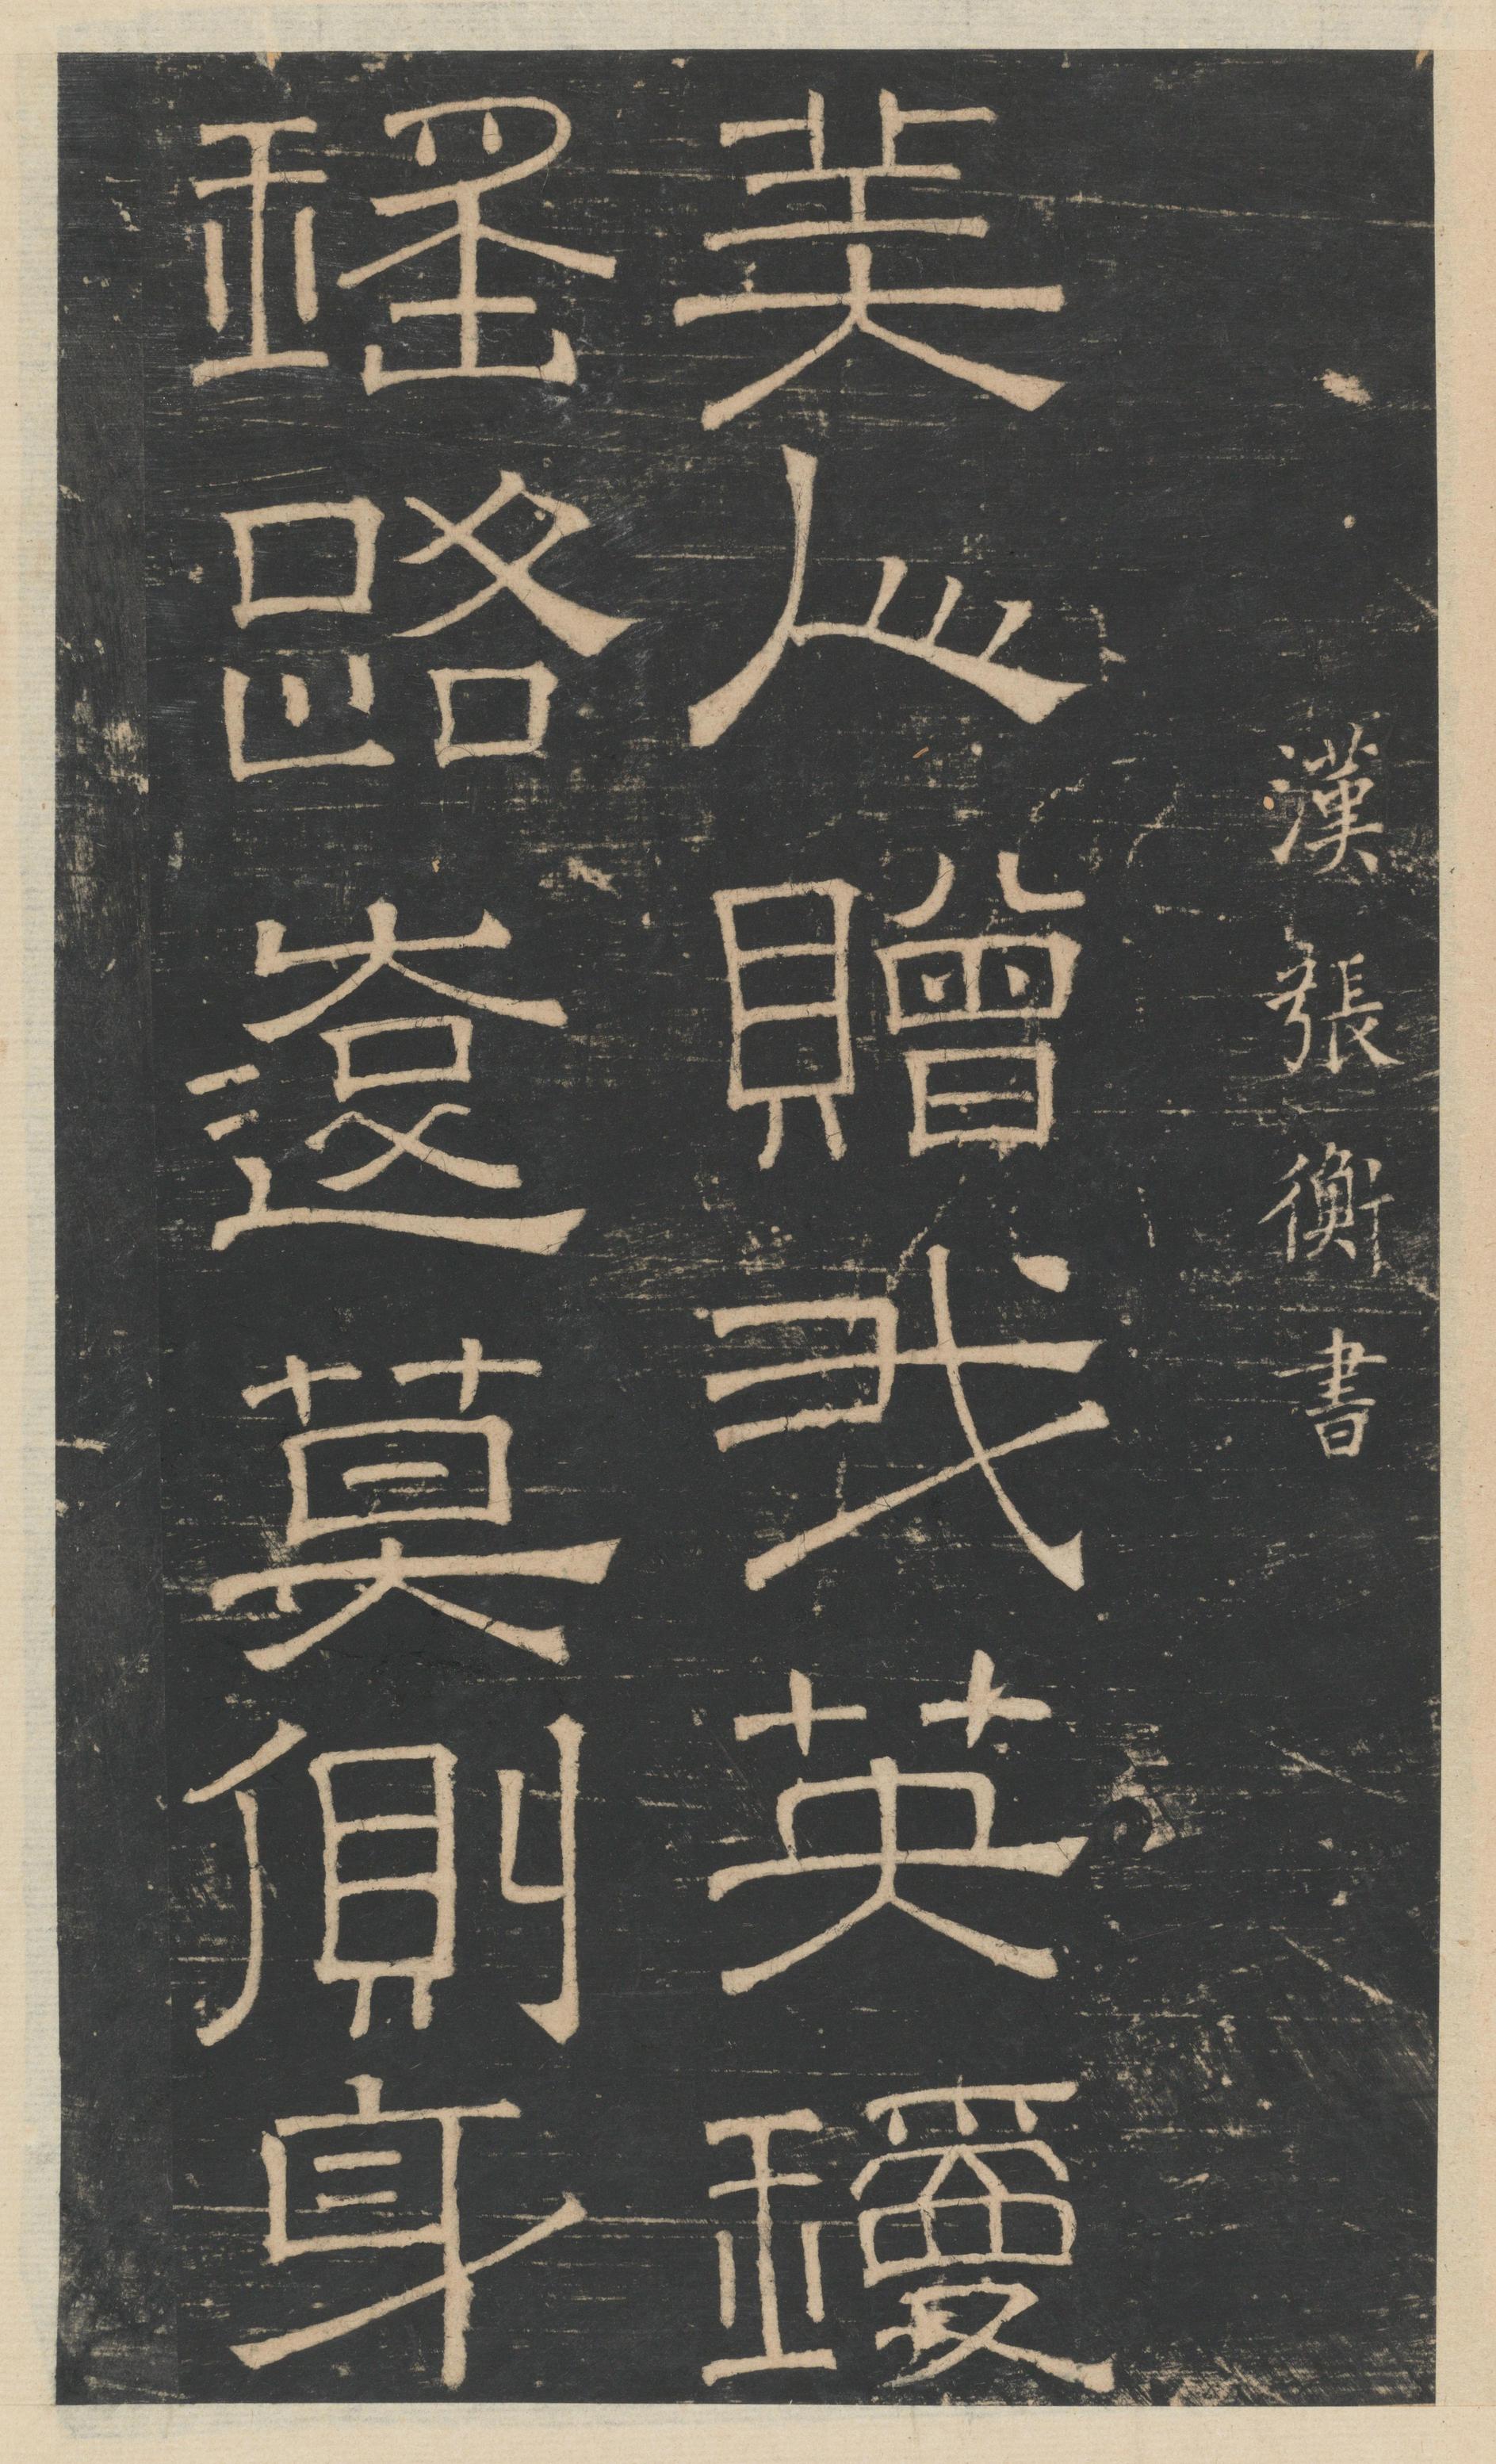 漢張衡書
美人贈我英瓊
瑤路遠莫側身